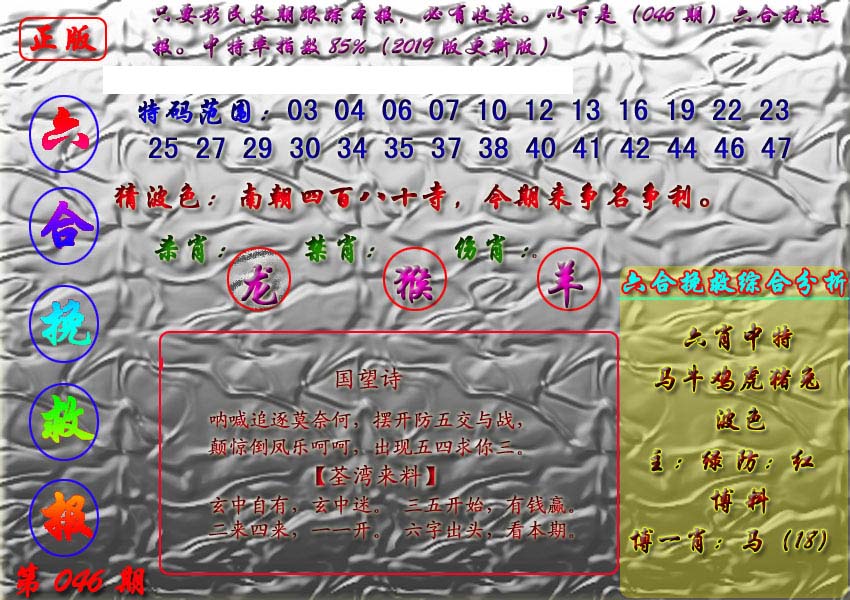 正版
只要彩民长期跟踪本报，必有收获。以下是（046期）六合挽救
报。中特率指数85%（2019版更新版）
六合挽救报
第046期
特码范围：03 04 06 07 10 12 13 16 19 22 23
25 27 29 30 34 35 37 38 40 41 42 44 46 47
猜波色：南朝四百八十寺，今期来争名争利。
杀肖：龙 禁肖：猴 伤肖：羊。
国望诗
呐喊追逐莫奈何，摆开防五交与战，
颠惊倒凤乐呵呵，出现五四求你三。
【荃湾来料】
玄中自有，玄中迷。 三五开始，有钱赢。
二来四来，一一开。 六字出头，看本期。
六合挽救综合分析
六肖中特
马牛鸡虎猪兔
波色
主：绿防：红
博料
博一肖：马（18）